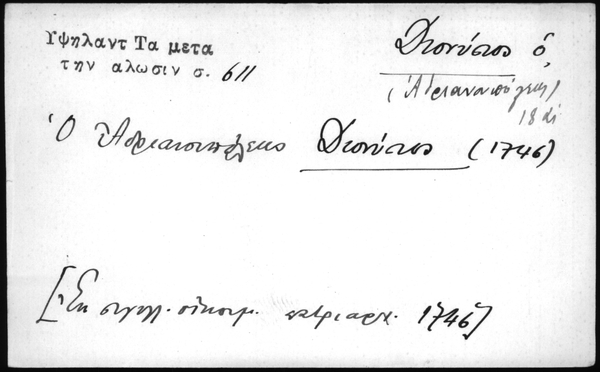 Υψηλαντ Τα μετα
την αλωσιν σ. 611
Διονύσιος ὁ,
(Ἀδριανουπόλεως)
18 αἰ
Ὁ Ἀδριανουπόλεως Διονύσιος (1746)
[Ἐκ συγγιλ. οἰκουμ. πατριαρχ. 1746]